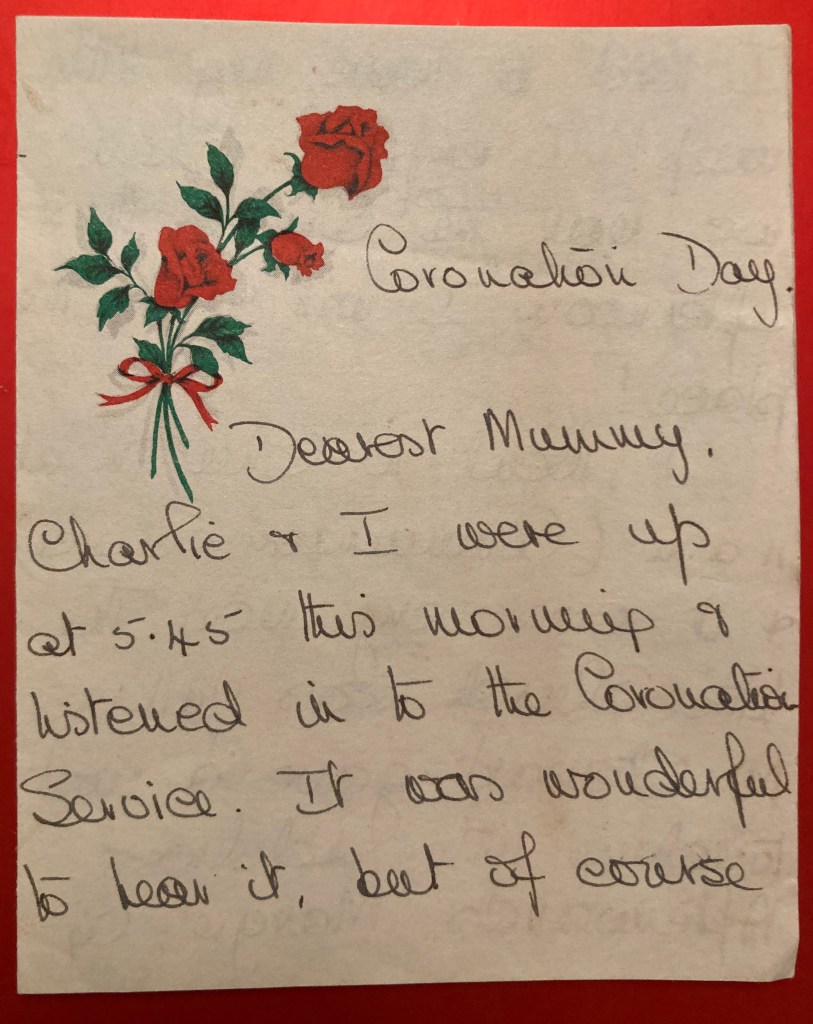 Coronation Day.
Dearest Mummy.
Charlie & I were up
at 5.45 this morning &
listened in to the Coronation
Service. It was wonderful
to hear it, but of course